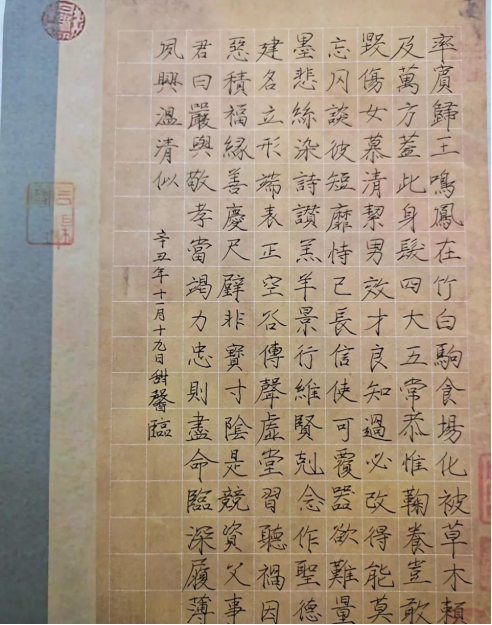 率賓歸王鳴鳳在竹白駒食場化被草木賴
及萬方蓋此身髮四大五常恭惟鞠養豈敢
毀傷女慕清絜男效才良知過必改得能莫
忘罔談彼短靡恃己長信使可覆器欲難量
墨悲絲染詩讚羔羊景行維賢剋念作聖德
建名立形端表正空谷傳聲虛堂習聽禍因
惡積福緣善慶尺璧非寶寸陰是競資父事
君曰嚴與敬孝當竭力忠則盡命臨深履薄
夙興溫清似
辛丑年十一月十九日甜馨臨